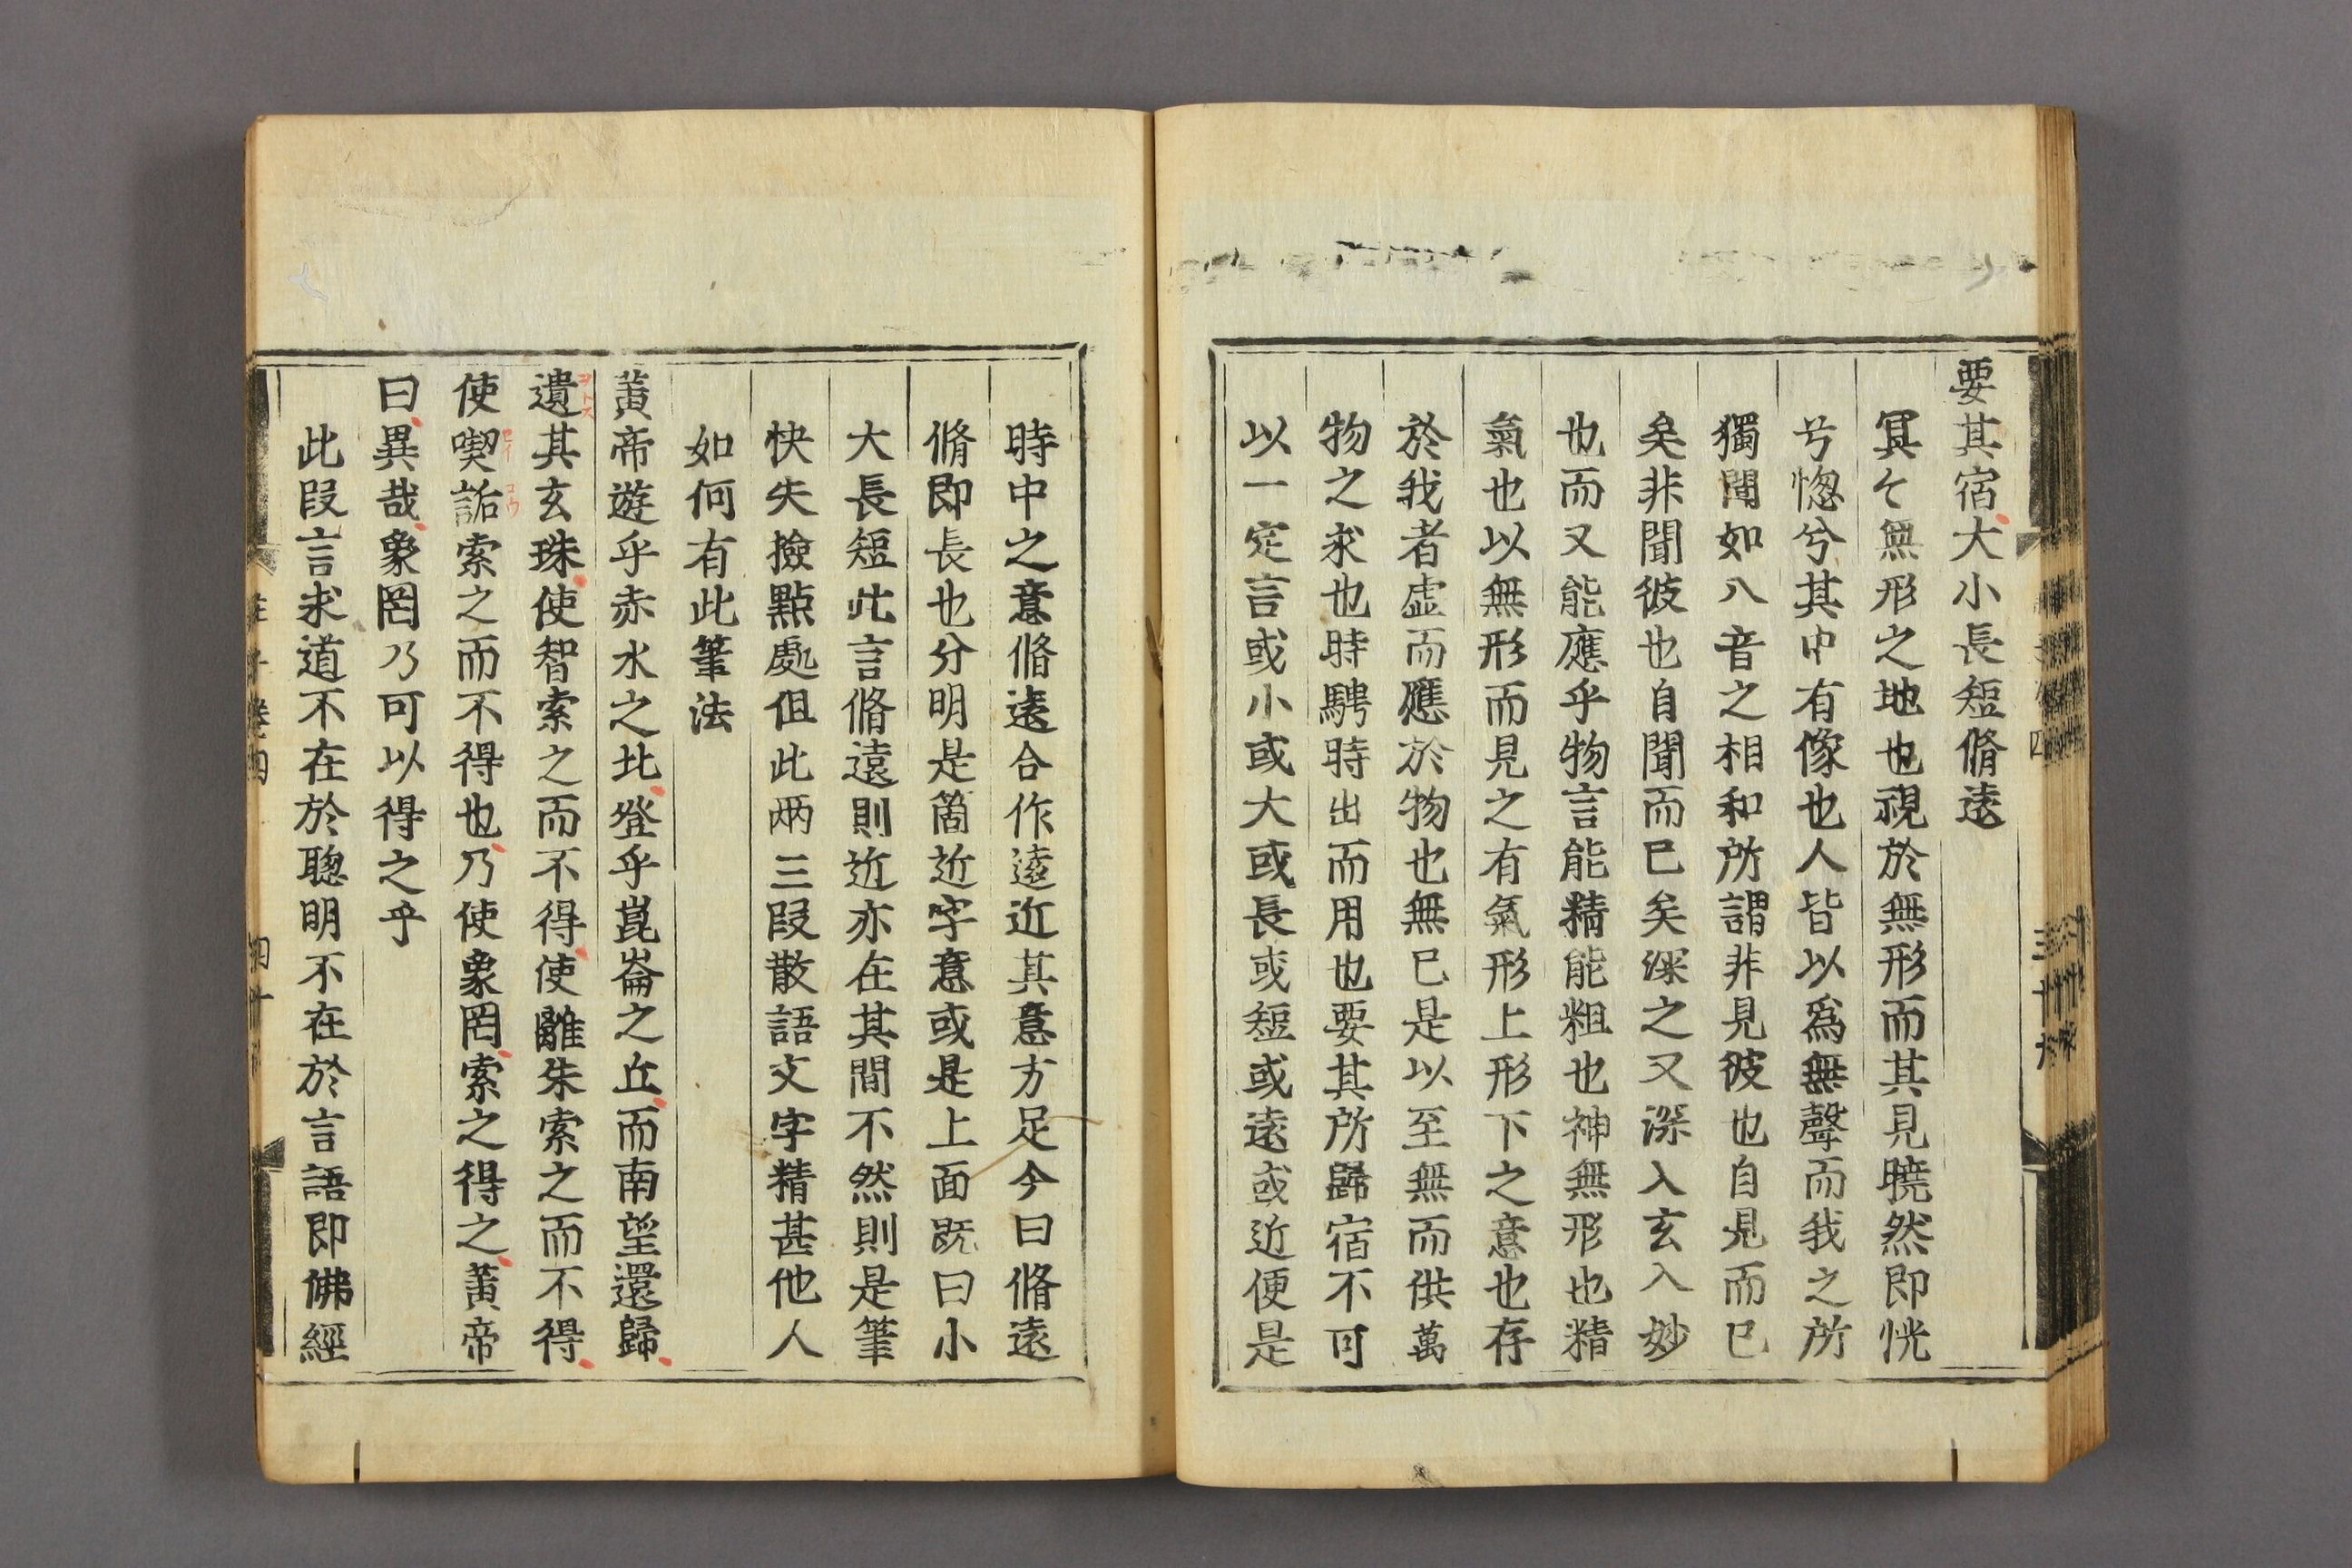 要其宿大小長短脩遠
冥〻無形之地也視於無形而其見曉然即恍
兮惚兮其中有像也人皆以爲無聲而我之所
獨聞如八音之相和所謂非見彼也自見而已
矣非聞彼也自聞而已矣深之又深入玄入妙
也而又能應乎物言能精能粗也神無形也精
氣也以無形而見之有氣形上形下之意也存
於我者虚而應於物也無已是以至無而供萬
物之求也時騁時出而用也要其所歸宿不可
以一定言或小或大或長或短或遠或近便是
時中之意脩遠合作遠近其意方足今曰脩遠
脩即長也分明是箇近字意或是上面既曰小
大長短此言脩遠則近亦在其間不然則是筆
快失撿點處但此两三段散語文字精甚他人
如何有此筆法
黃帝遊乎赤水之北登乎崑崙之丘而南望還歸
遺其玄珠使智索之而不得使離朱索之而不得
ヲトス
使喫詬索之而不得也乃使象罔索之得之黃帝
コウ
曰異哉象罔乃可以得之乎
此段言求道不在於聰明不在於言語即佛經